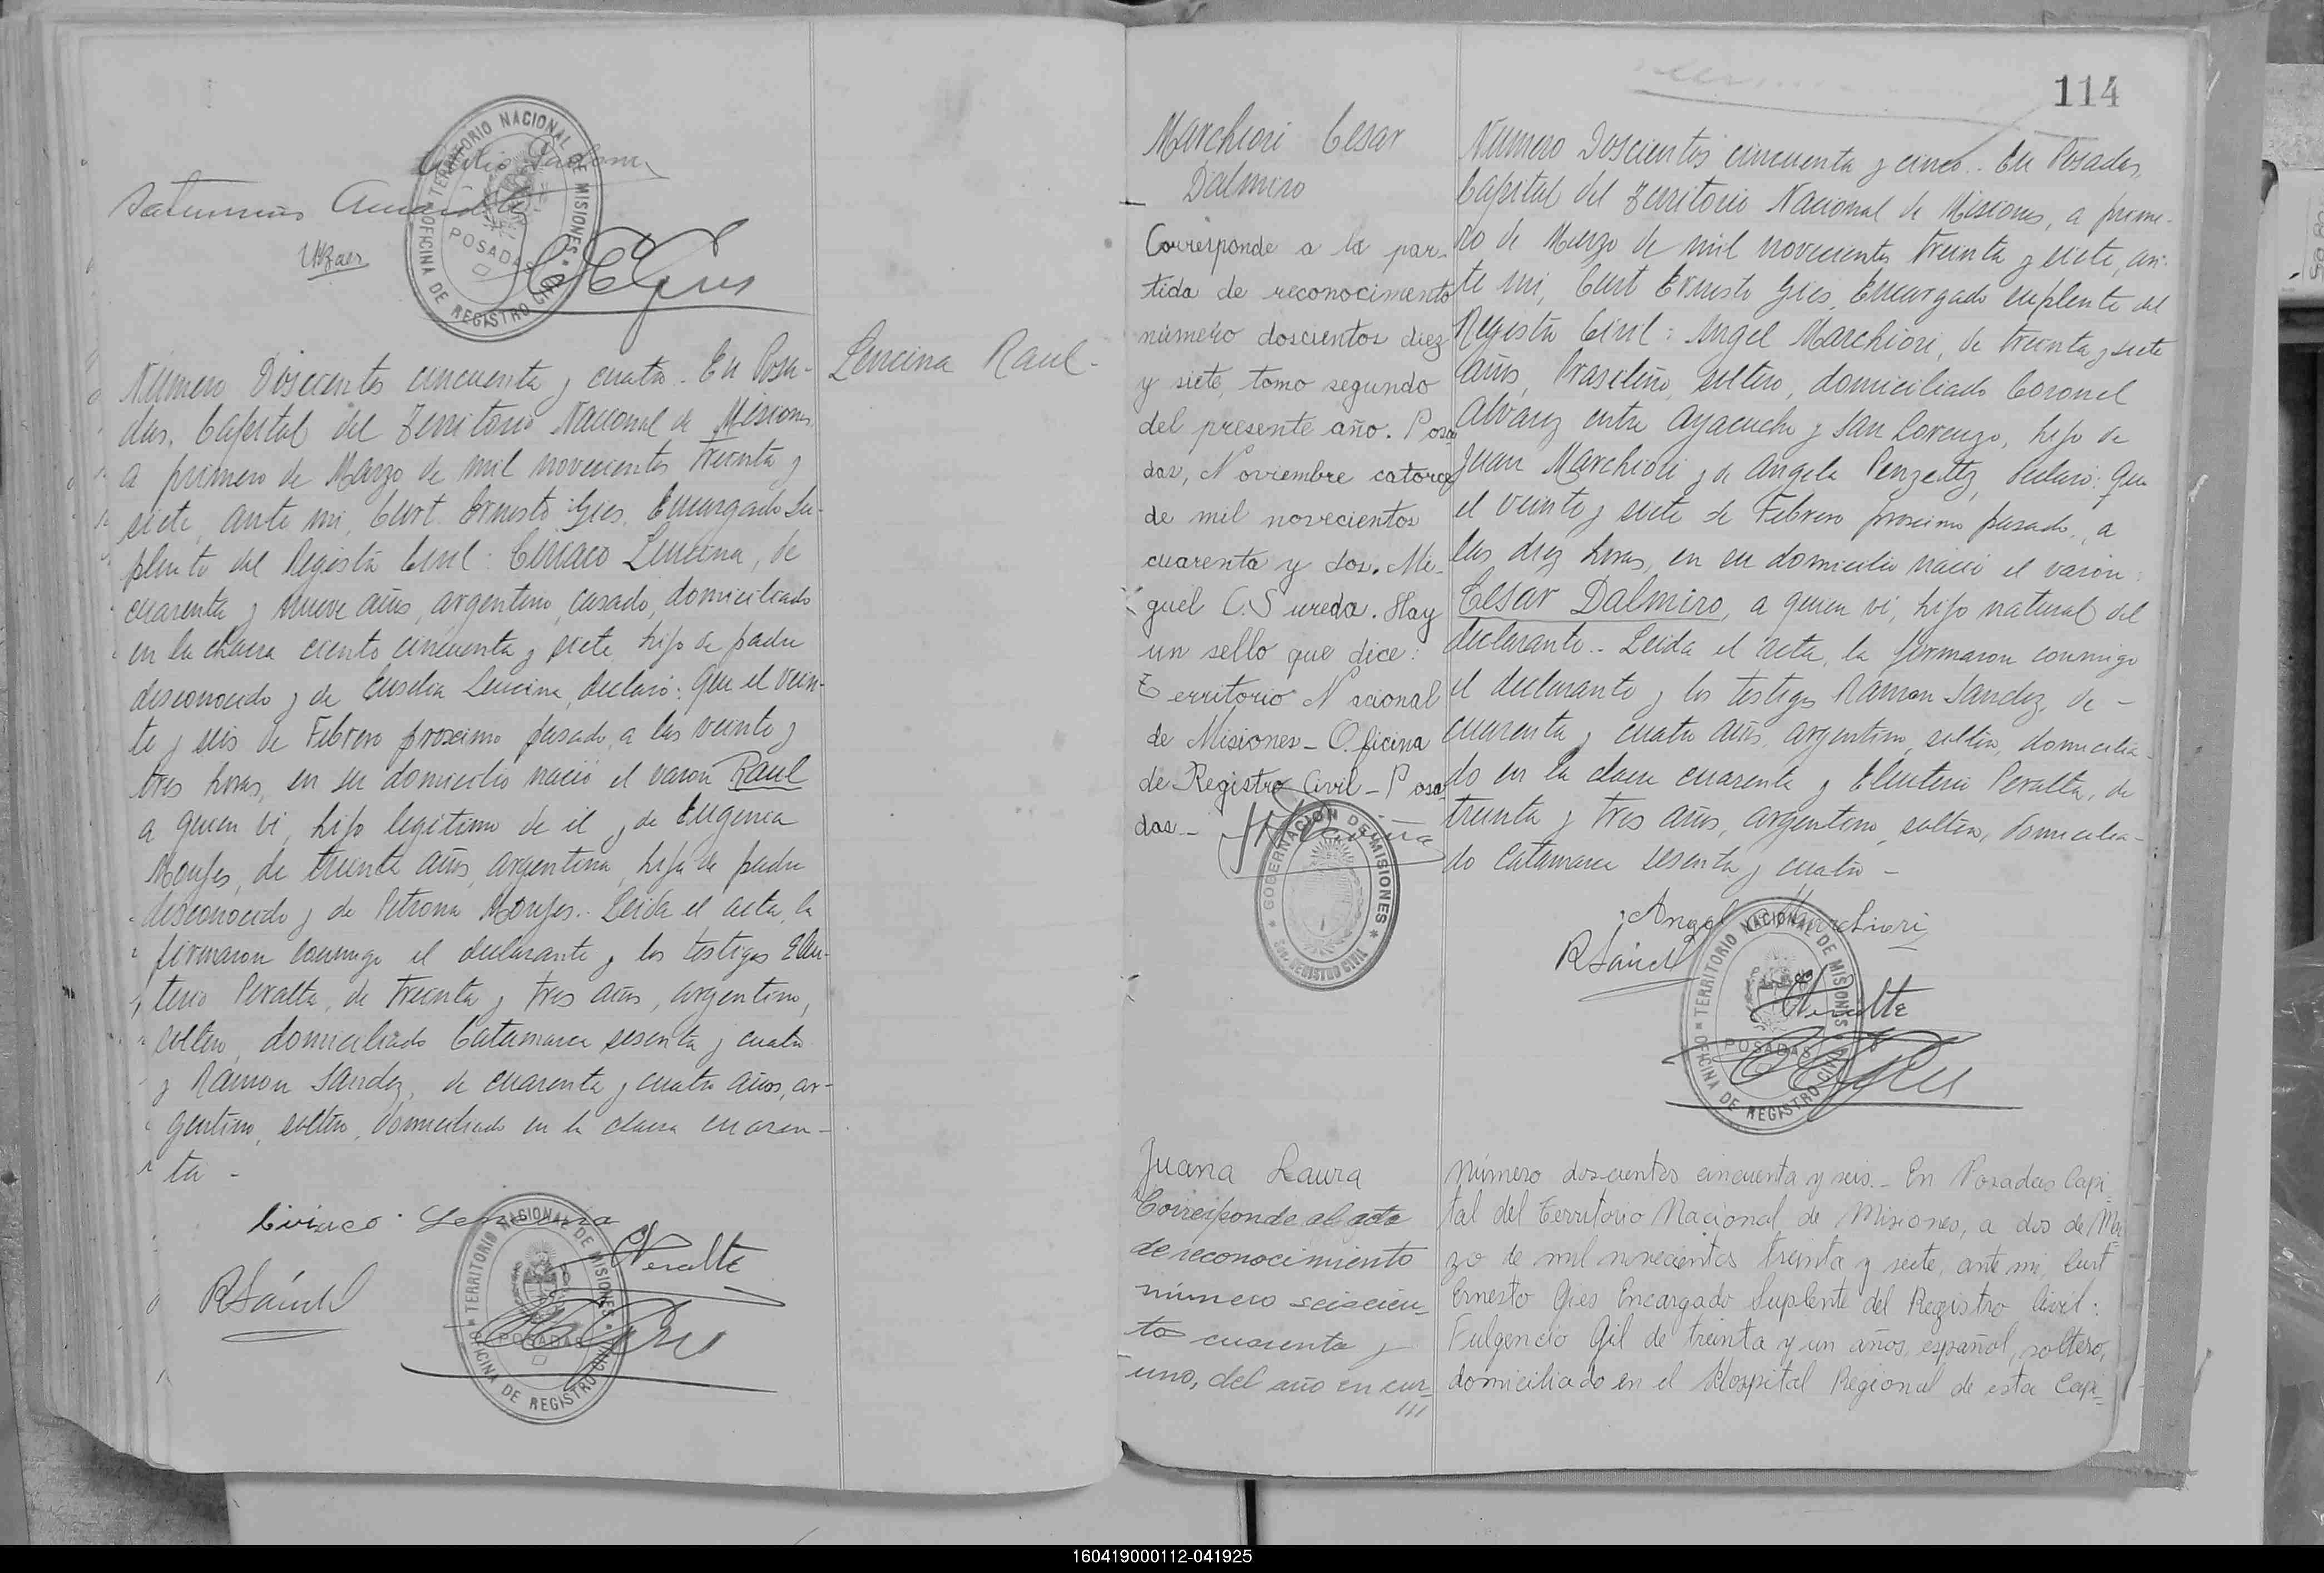 Saturnino
TERRITORIO NACIONAL DE MISIONES
POSADAS
OFICINA DE REGISTRO CIVIL
Número Doscientos cincuenta y cuatro. En Posa-
das, Capital del Territorio Nacional de Misiones,
a primero de Marzo de mil novecientos treinta y
siete, ante mi, Curt Ernesto Gies, Encargado Su-
plente del Registro Civil: Ciriaco Lencina, de
cuarenta y nueve años, argentino, casado, domiciliado
en la chacra ciento cincuenta y siete, hijo de padre
desconocido y de Lencina, declaró: Que el vein-
te y seis de Febrero proximo pasado, a las veinte y
tres horas, en su domicilio nació el varon Raul
a quien vi, hijo legitimo de él y de Eugenia
Monjes, de treinta años, argentina, hija de padre
desconocido y de Petrona Monjes. Leida el acta, la
firmaron conmigo el declarante y los testigos Eleu-
terio Peralta, de treinta y tres años, argentino,
soltero, domiciliado Catamarca sesenta y cuatro
y Ramon Sandez, de cuarenta y cuatro años, ar-
gentino, soltero, domiciliado en la chacra cuaren-
ta -
Ciriaco Lencina
Peralta
TERRITORIO NACIONAL DE MISIONES
POSADAS
OFICINA DE REGISTRO CIVIL
Lencina Raul-
114
Marchiori Cesar
Dalmiro
Corresponde a la par-
tida de reconocimento
número doscientos diez
y siete, tomo segundo
del presente año. Posa
das, Noviembre catorce
de mil novecientos
cuarenta y dos. Mi-
guel C. Sureda. Hay
un sello que dice:
Territorio Nacional
de Misiones - Oficina
de Registro Civil - Posa
das -
GOBERNACION DE MISIONES
REGISTRO CIVIL
Número Doscientos cincuenta y cinco. En Posadas,
Capital del Territorio Nacional de Misiones, a prime-
ro de Marzo de mil novecientos treinta y siete, an-
te mi, Curt Ernesto Gies, Encargado suplente del
Registro Civil: Angel Marchiori, de treinta y siete
años, brasileño, soltero, domiciliado Coronel
Alvarez entre Ayacucho y San Lorenzo, hijo de
Juan Marchiori y de Angela, declaró: Que
el veinte y siete de Febrero proximo pasado, a
las diez horas, en su domicilio nació el varon:
Cesar Dalmiro, a quien vi, hijo natural del
declarante.. Leida el acta, la firmaron conmigo
el declarante y los testigos Ramon Sandez, de -
cuarenta y cuatro años, argentino, soltero, domicilia-
do en la chacra cuarenta y Eleuterio Peralta, de
treinta y tres años, argentino, soltero, domicilia-
do Catamarca sesenta y cuatro -
Angel Marchiori
Peralta
TERRITORIO NACIONAL DE MISIONES
POSADAS
OFICINA DE REGISTRO CIVIL
Juana Laura
Corresponde al acta
de reconocimiento
número seiscien-
to cuarenta y
uno, del año en cur-
///
Número doscientos cincuenta y seis.- En Posadas Capi
tal del Territorio Nacional de Misiones, a dos de Mar
zo de mil novecientos treinta y siete, ante mi, Curt
Ernesto Gies Encargado Suplente del Registro Civil:
Fulgencio Gil de treinta y un años, español, soltero,
domiciliado en el Hospital Regional de esta Capi-
160419000112-041925